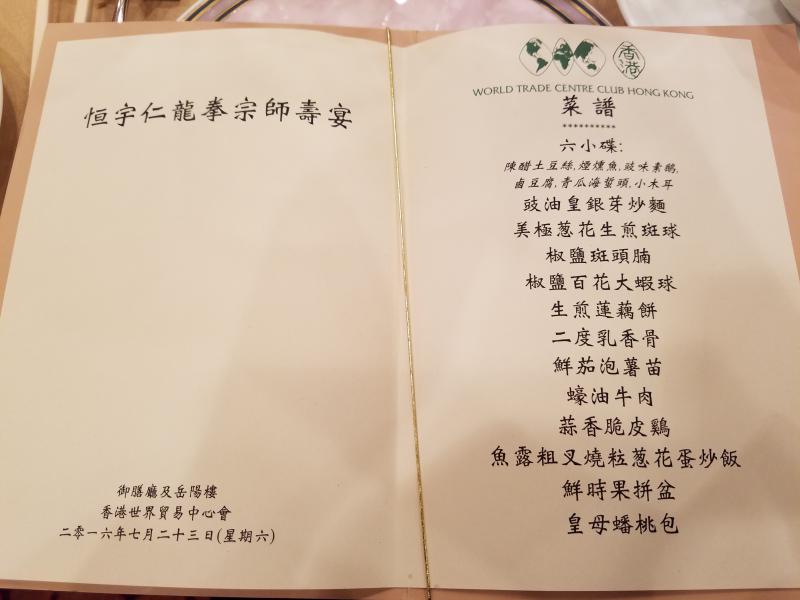 恒宇仁龍拳宗師壽宴
御膳廳及岳陽樓
香港世界貿易中心會
二零一六年七月二十三日(星期六)
香港
WORLD TRADE CENTRE CLUB HONG KONG
菜譜
**********
六小碟:
陳醋土豆絲,煙燻魚,豉味素鵝,
鹵豆腐,青瓜海蜇頭,小木耳
豉油皇銀芽炒麵
美極葱花生煎斑球
椒鹽斑頭腩
椒鹽百花大蝦球
生煎蓮藕餅
二度乳香骨
鮮茄泡薯苗
蠔油牛肉
蒜香脆皮鷄
魚露粗叉燒粒葱花蛋炒飯
鮮時果拼盆
皇母蟠桃包